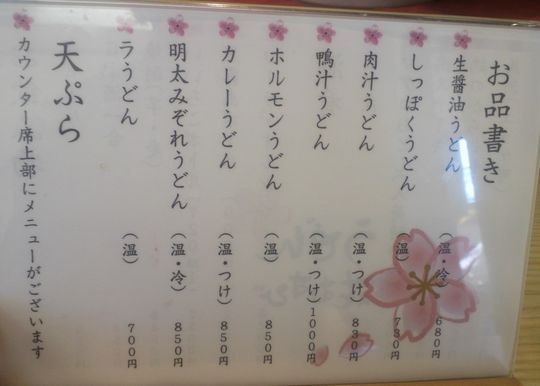 お品書き
生醤油うどん (温・冷) 680円
しっぽくうどん (温) 730円
肉汁うどん (温・つけ) 830円
鴨汁うどん (温・つけ) 1000円
ホルモンうどん (温) 850円
カレーうどん (温・つけ) 850円
明太みぞれうどん (温・冷) 850円
ラうどん (温) 700円
天ぷら
カウンター席上部にメニューがございます